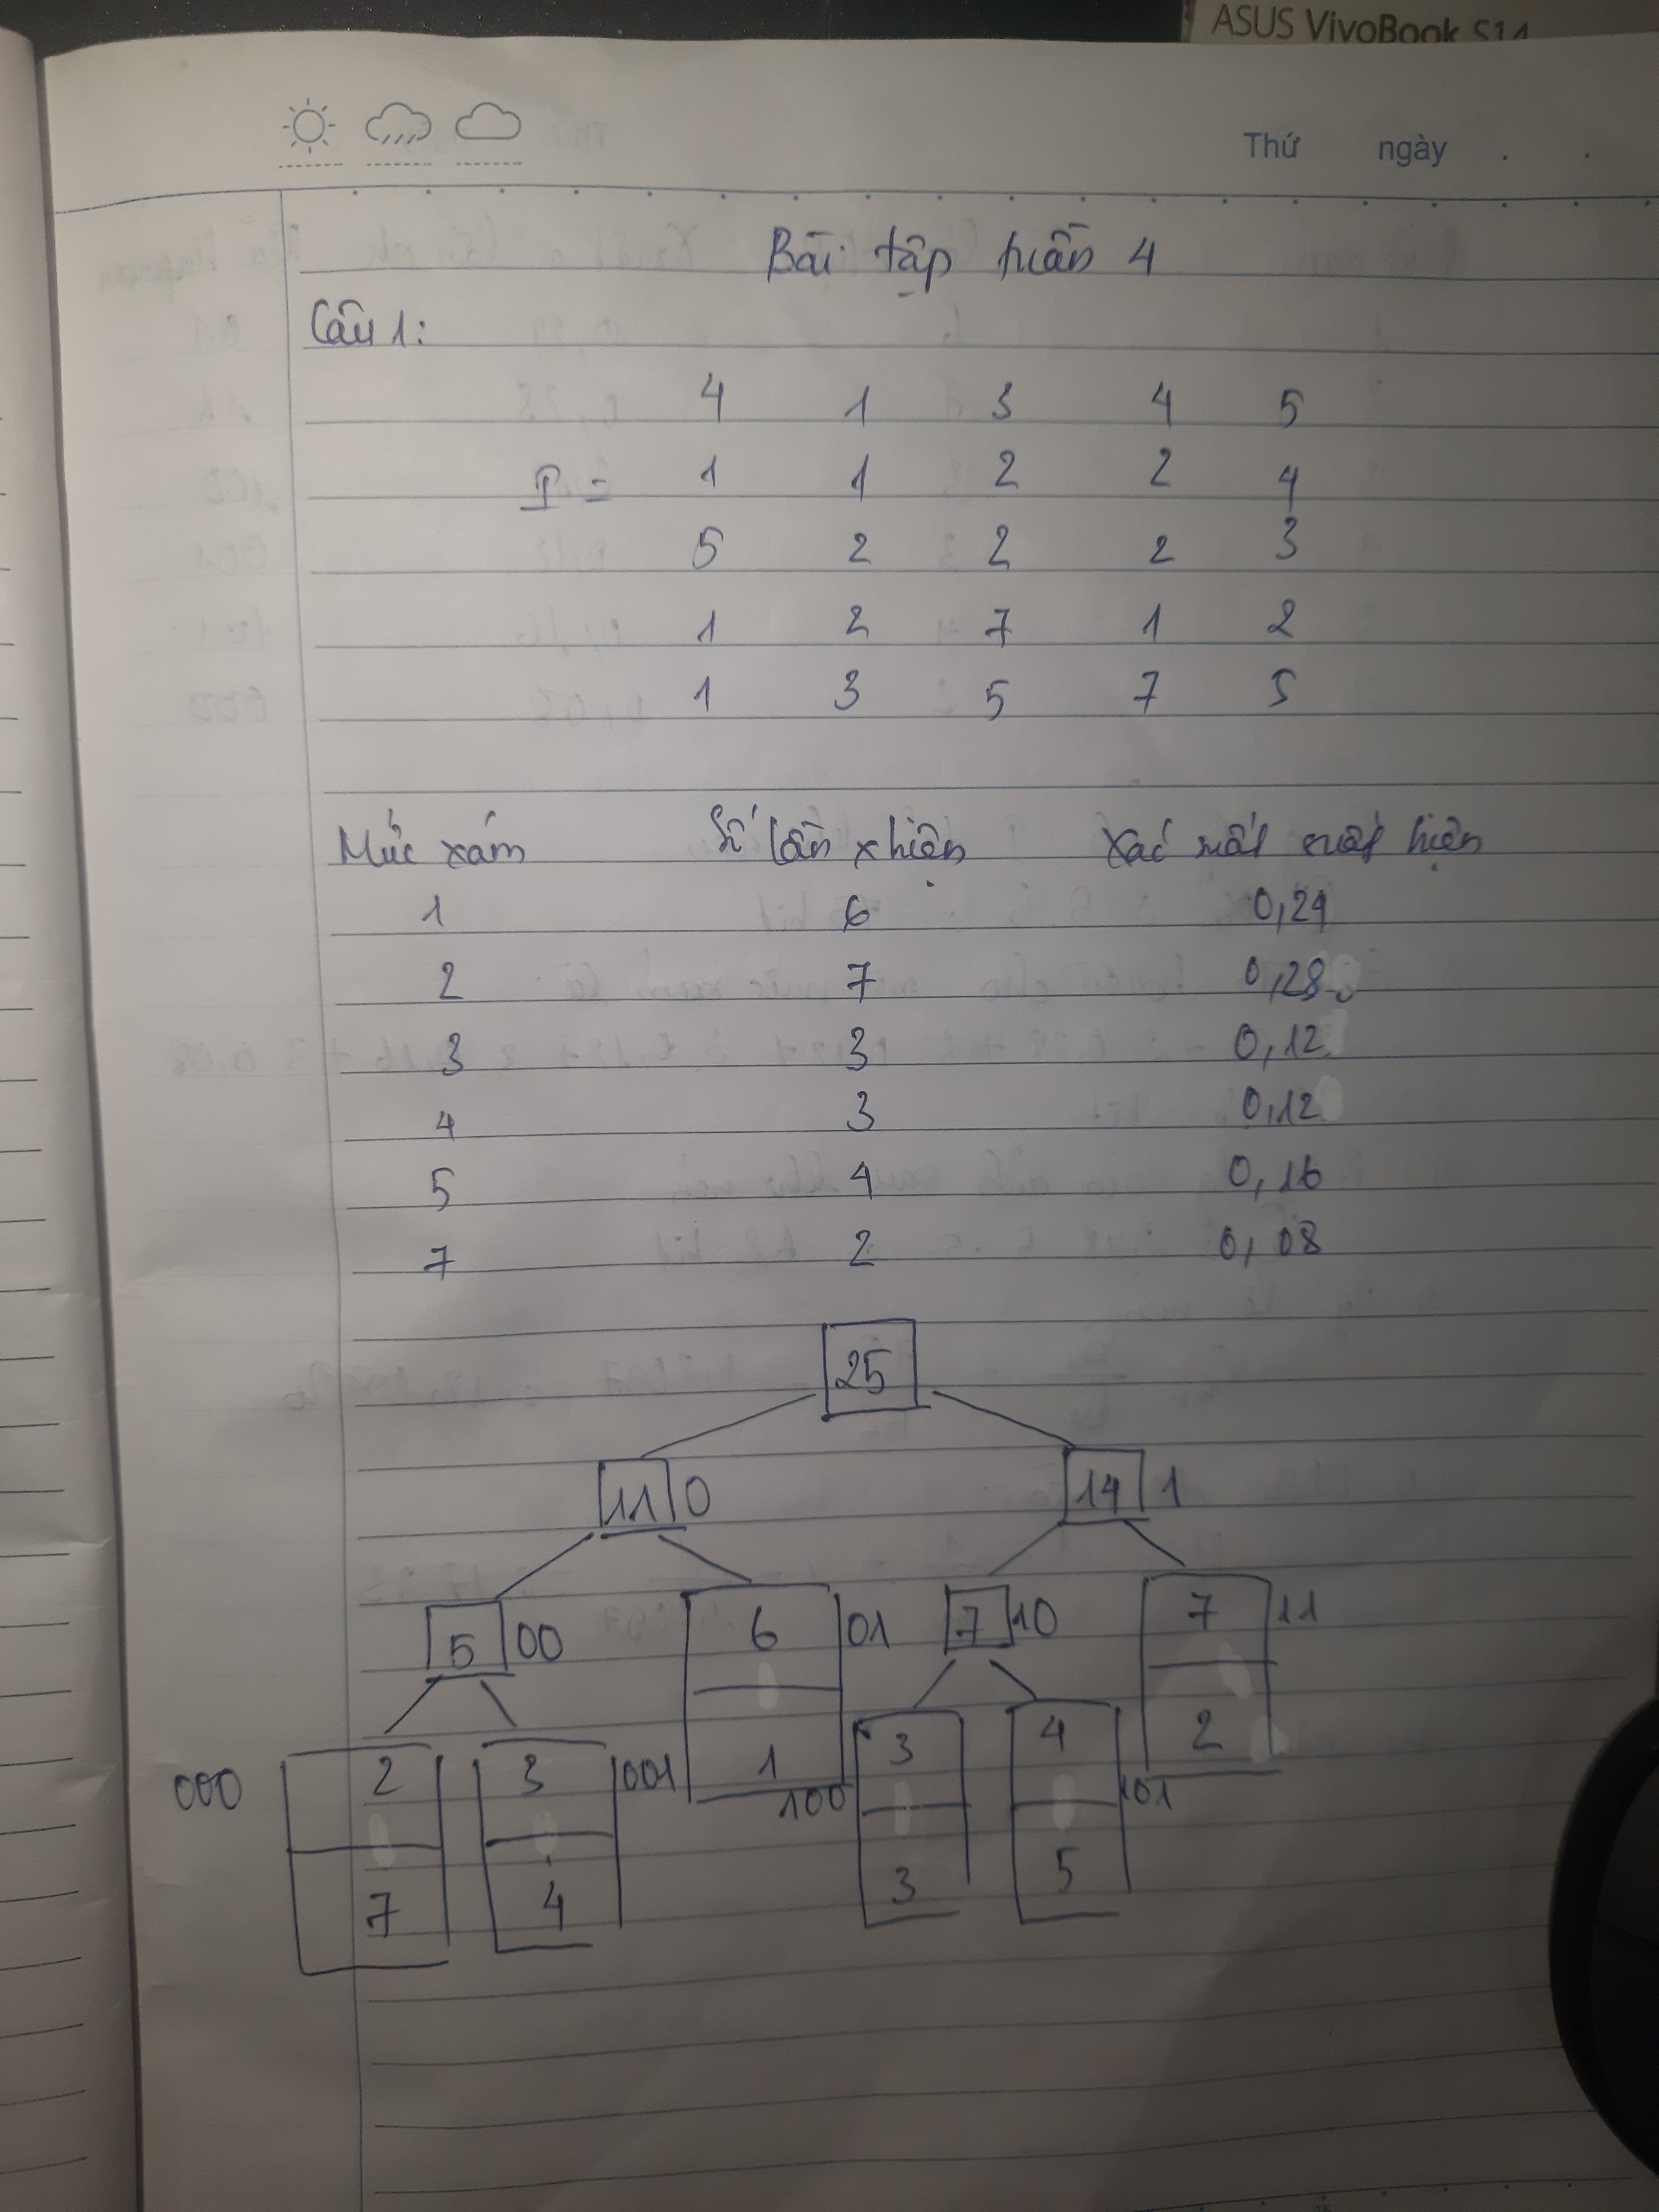 ASUS VivoBook S14
Thứ ngày
Bài tập tuần 4
Câu 1:
4 1 3 4 5
I = 1 1 2 2 4
5 2 2 2 3
1 2 7 1 2
1 3 5 7 5
Mức xám Số lần x hiện Xác xuất xuất hiện
1 6 0,24
2 7 0,28
3 3 0,12
4 3 0,12
5 4 0,16
7 2 0,08
25
11 0 14 1
5 00 6 01 7 10 7 11
1 2
000 2 3 001 100 3 4 101
7 4 3 5